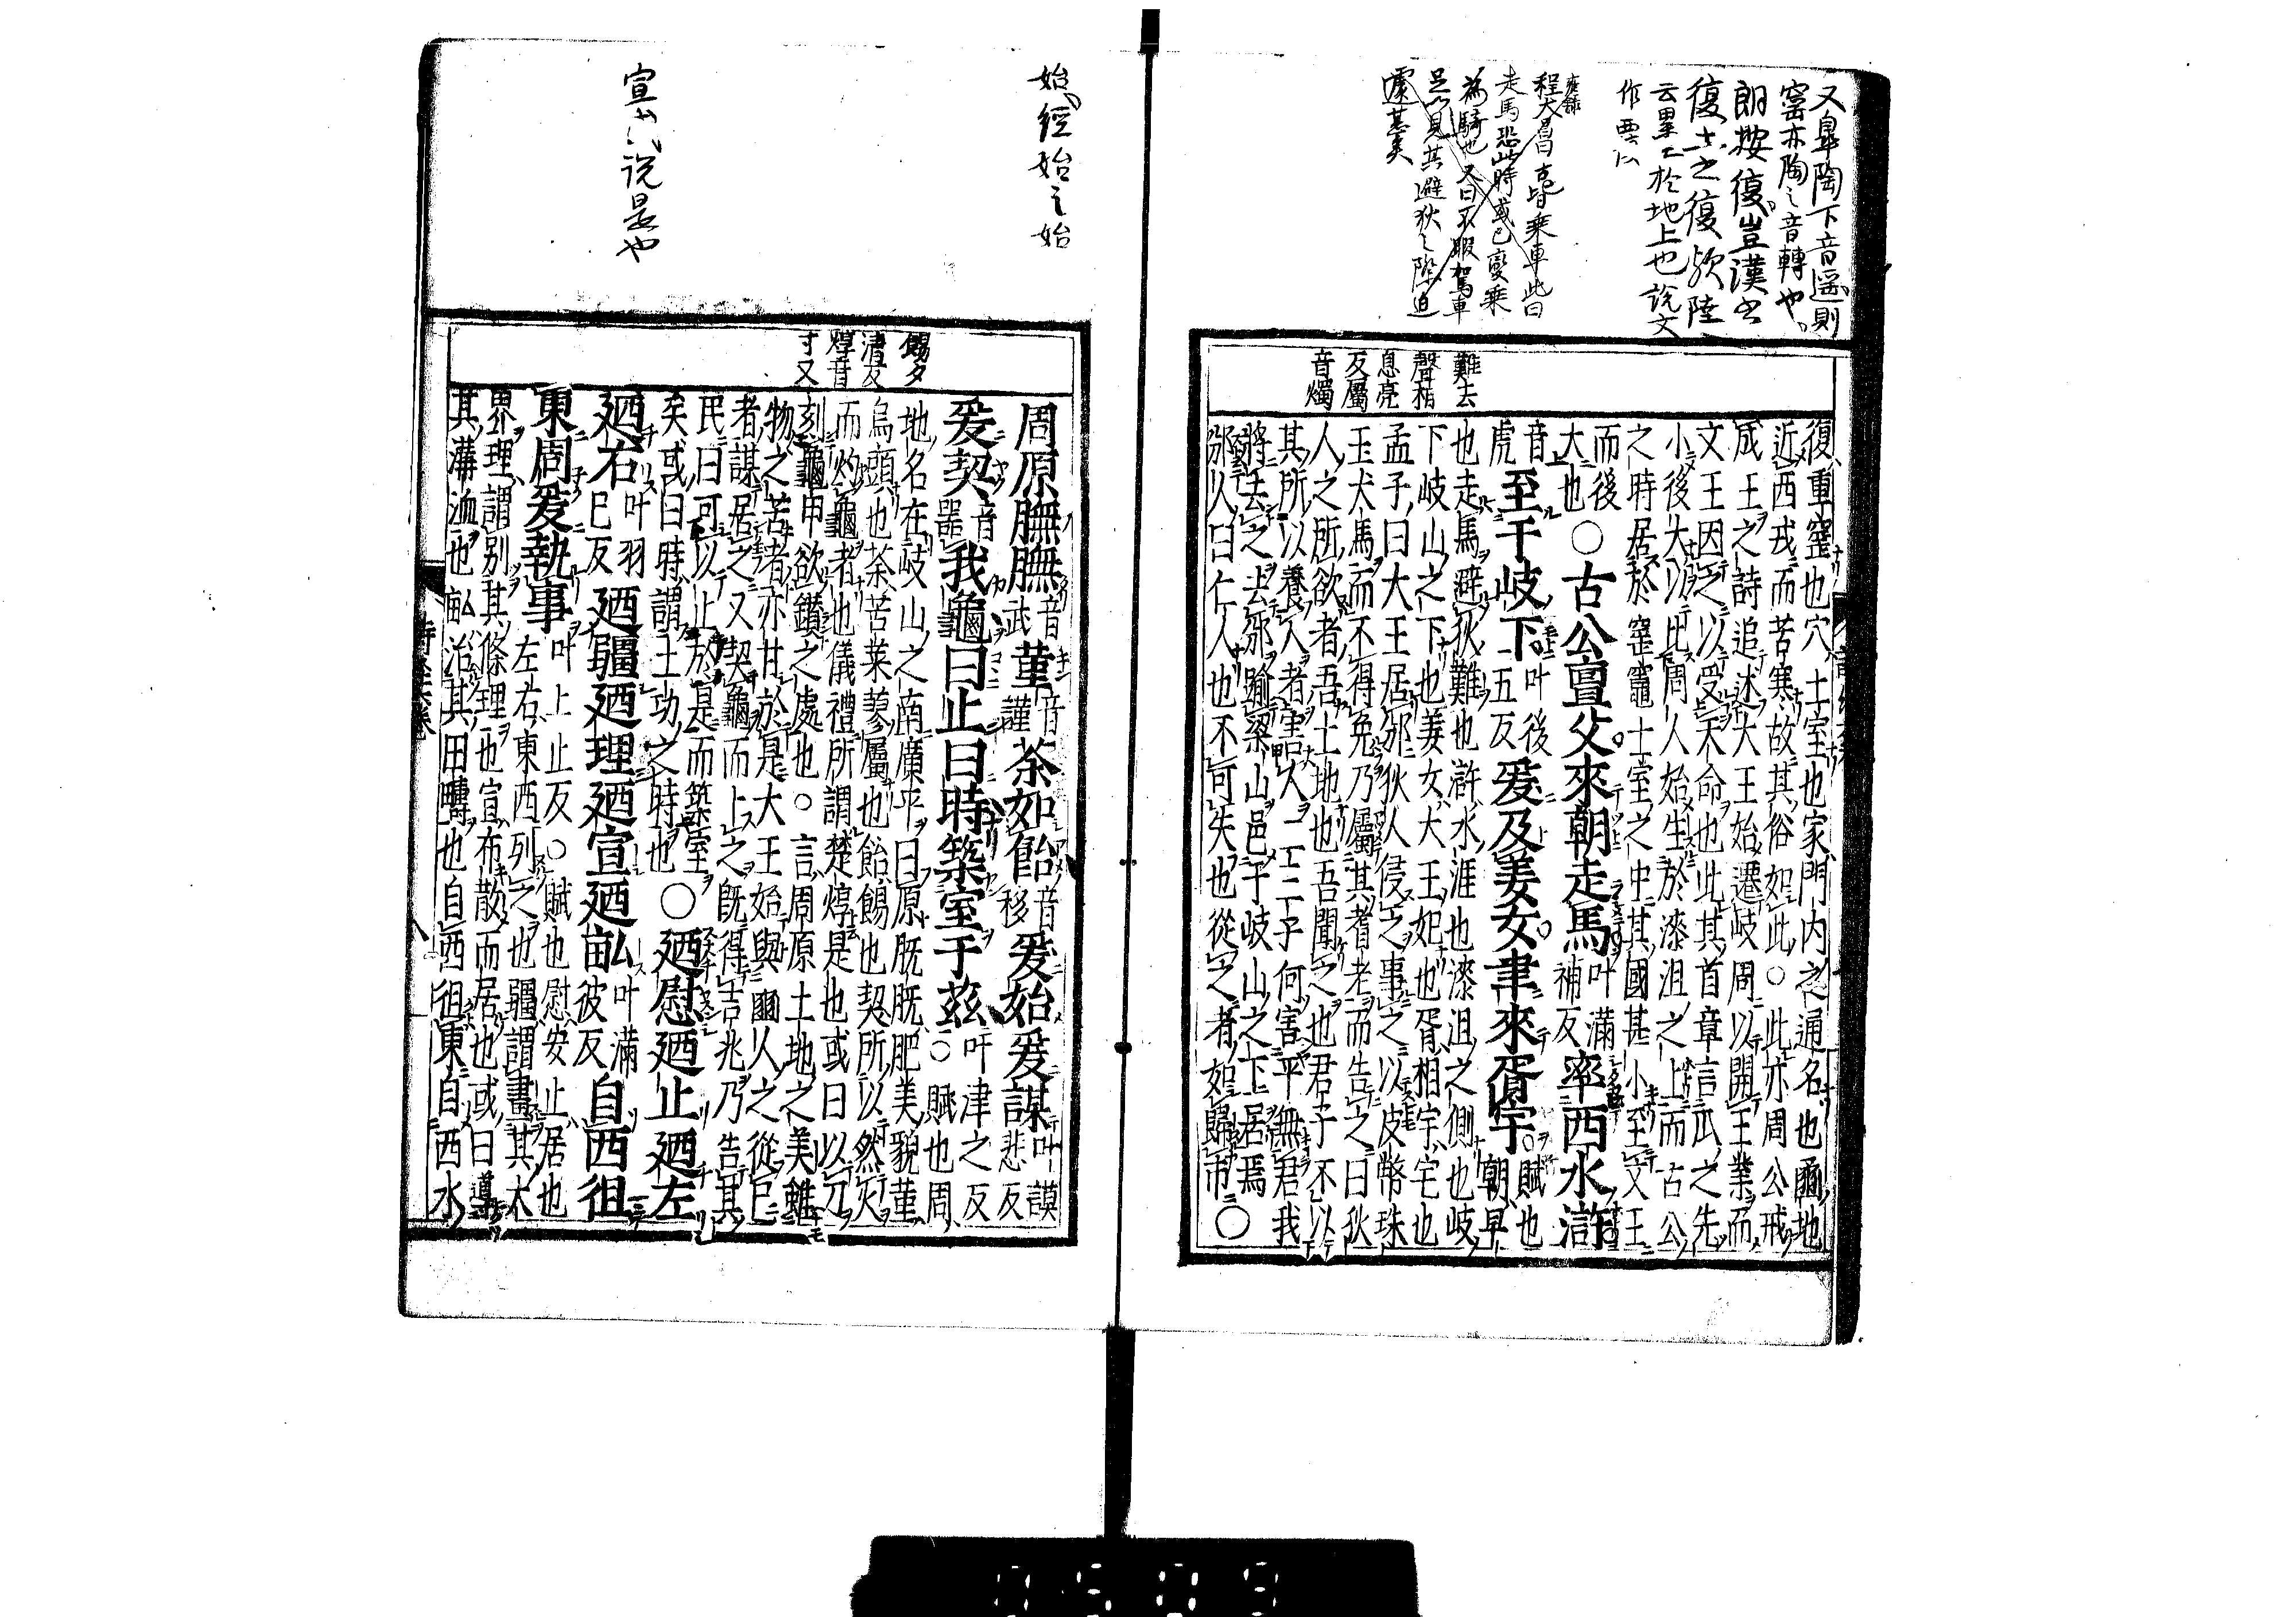 又皐陶下音遥則
窑亦陶之音轉也
朗按復豈漢書
復土之復歟陸
云累土於地上也說文
作
雍録
程大昌曰古皆乘車此曰
走馬恐此時或已變乘
為騎也又曰不暇駕車
足以見其避狄之際迫
遽甚矣
難去
聲相
息亮
反屬
音燭
復重窰也穴土室也家門内之通名也豳地
近西戎而苦寒故其俗如此○此亦周公戒
成王之詩追述大王始遷岐周以開王業而
文王因之以受天命也此其首章言瓜之先
小後大以比周人始生於漆沮之上而古公
之時居於窰竈土室之中其國甚小至文王
而後
大也○古公亶父來朝走馬叶滿
補反率西水滸
音
虎至于岐下叶後
五反爰及姜女聿來胥宇○賦也
朝早
也走馬避狄難也滸水涯也漆沮之側也岐
下岐山之下也姜女大王妃也胥相宇宅也
孟子曰大王居邠狄人侵之事之以皮幣珠
玉犬馬而不得免乃屬其耆老而告之曰狄
人之所欲者吾土地也吾聞之也君子不以
其所以養人者害人二三子何害乎無君我
將去之去邠踰梁山邑于岐山之下居焉
邠人曰仁人也不可失也從之者如歸市○
始經始之始
宣 說是也
餳夕
清反
焞音
寸又
周原膴膴音
武菫音
謹荼如飴音
移爰始爰謀叶謨
悲反
爰契音
器我龜曰止曰時築室于茲叶津之反
○賦也周
地名在岐山之南廣平曰原膴膴肥美貌菫
烏頭也荼苦菜蓼屬也飴餳也契所以然火
而灼龜者也儀禮所謂楚焞是也或曰以刀
刻龜甲欲鑽之處也○言周原土地之美雖
物之苦者亦甘於是大王始與豳人之從己
者謀居之又契龜而上之既得吉兆乃告其
民曰可以止於是而築室
矣或曰時謂土功之時也○廼慰廼止廼左
廼右叶羽
已反廼疆廼理廼宣廼畝叶滿
彼反自西徂
東周爰執事叶上止反○賦也慰安止居也
左右東西列之也疆謂畫其大
界理謂別其條理也宣布散而居也或曰導
其溝洫也畝治其田疇也自西徂東自西水